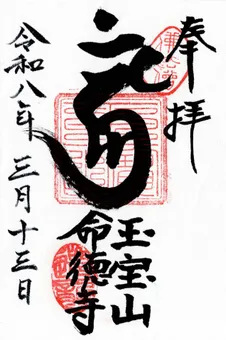 奉拝
玉宝山
命徳寺
令和八年三月十三日